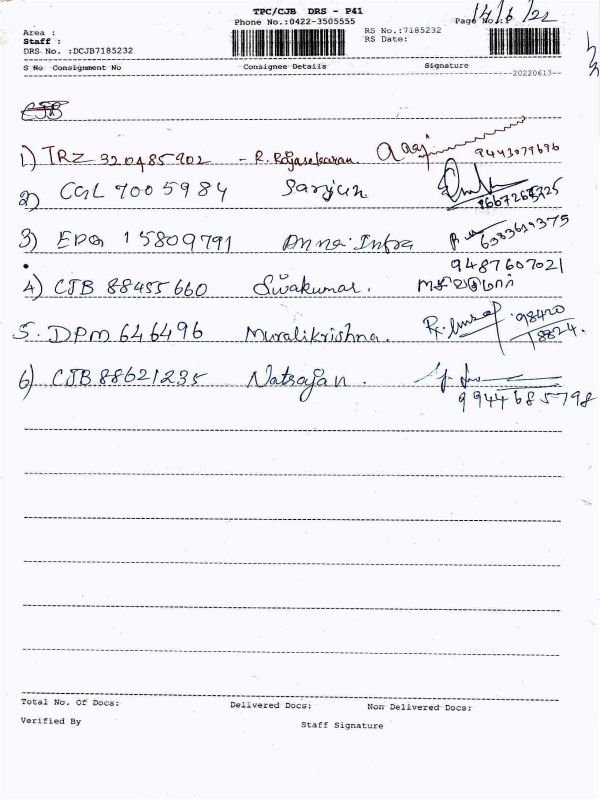 TPC/CJB DRS - P41
Phone No.:0422-3505555
Page No.:
14/6/22
Area :
RS No.:7185232
Staff :
RS Date:
DRS No. :DCJB7185232
S No Consignment No Consignee Details Signature
20220613
CJB
1) TRZ 320485902 - R. Rajasekaran. 9443079696
2) CGL 7005984 Sanjun
3) EDQ 15809791 Anna Infra 6383619375
9487607021
4) CJB 88455660 Sivakumar. சிவகுமார்
5. DPM 646496 Muralikrishna. 98420
18824.
6) CJB 88621235 Natrajan.
9944685798
Total No. Of Docs: Delivered Docs: Non Delivered Docs:
Verified By Staff Signature